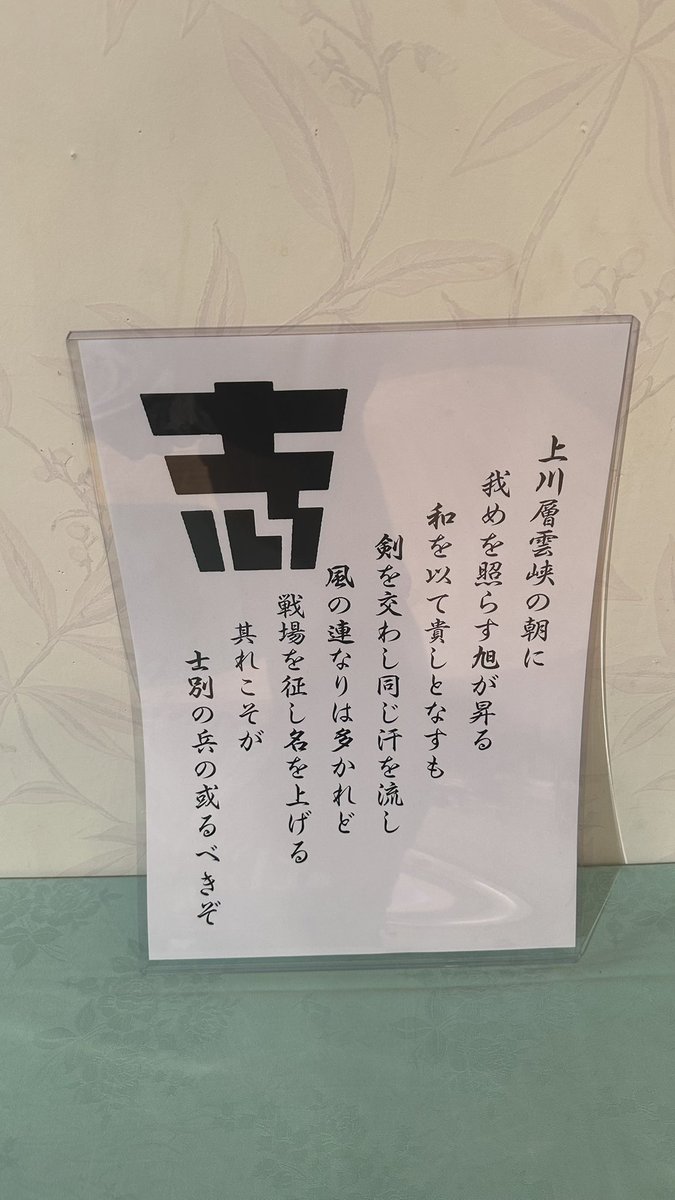 志
上川層雲峡の朝に
我めを照らす旭が昇る
和を以て貴しとなすも
剣を交わし同じ汗を流し
風の連なりは多かれど
戦場を征し名を上げる
其れこそが
士別の兵の或るべきぞ